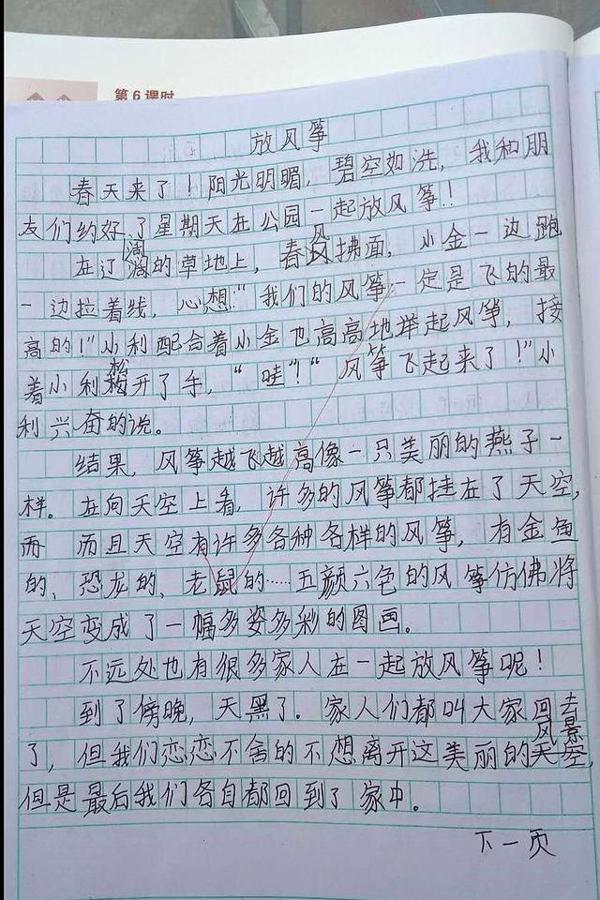 第6课时
放风筝
春天来了！阳光明媚，碧空如洗，我和朋
友们约好了星期天在公园一起放风筝！
在辽阔的草地上，春风拂面，小金一边跑
一边拉着线，心想：“我们的风筝一定是飞的最
高的！”小利配合着小金也高高地举起风筝，接
着小利松开了手，“哇”！“风筝飞起来了！”小
利兴奋的说。
结果，风筝越飞越高像一只美丽的燕子一
样。在向天空上看，许多的风筝都挂在了天空，
而 而且天空有许多各种各样的风筝，有金鱼
的、恐龙的、老鼠的……五颜六色的风筝仿佛将
天空变成了一幅多姿多彩的图画。
不远处也有很多家人在一起放风筝呢！
到了傍晚，天黑了。家人们都叫大家回去
了，但我们恋恋不舍的不想离开这美丽的风景，
但是最后我们各自都回到了家中。
下一页